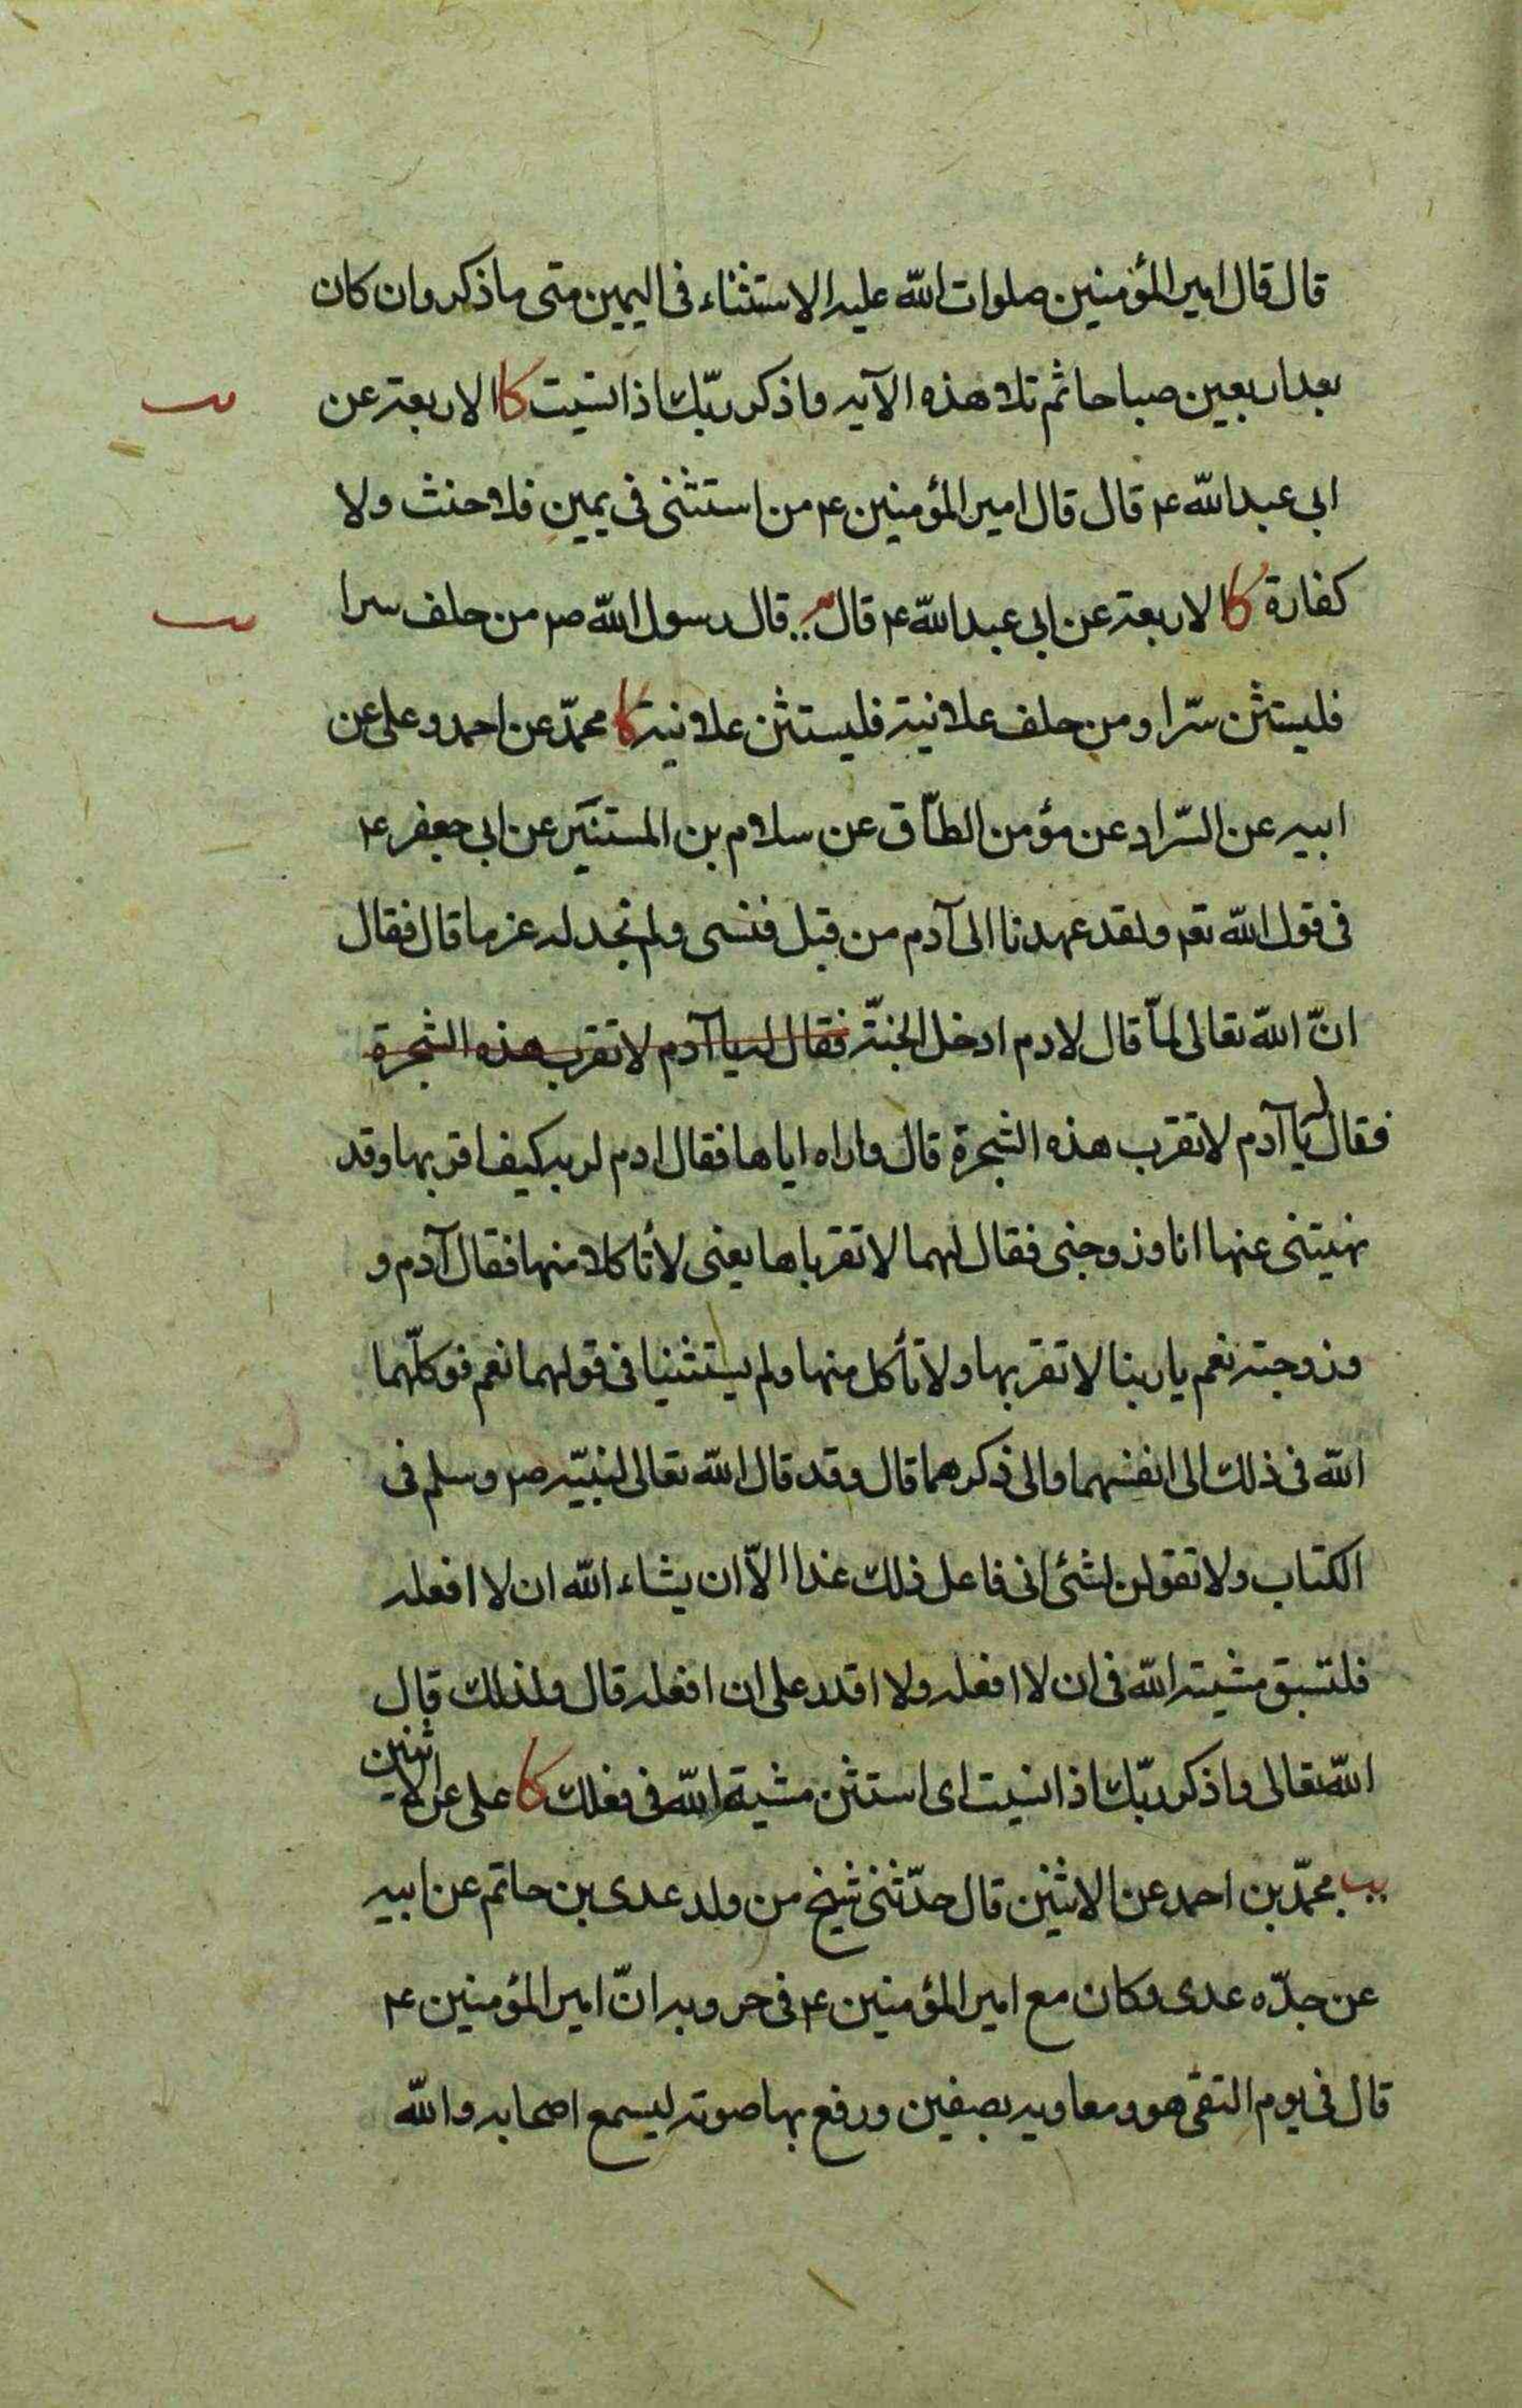 قال قال امير المؤمنين صلوات الله عليه الاستثناء فى اليمين متى ما ذكر وان كان
بعد اربعين صباحا ثم تلا هذه الآيه واذكر ربّك اذا نسيت كا الاربعة عن
ابى عبد الله ع قال قال امير المؤمنين ع من استثنى فى يمين فلا حنث ولا
كفارة كا الاربعة عن ابى عبد الله ع قال قال رسول الله ص من حلف سرا
فليستثن سّرا ومن حلف علانية فليستثن علانية كا محمّد عن احمد وعلى عن
ابيه عن السّراد عن مؤمن الطّاق عن سلام بن المستنير عن ابى جعفر ع
فى قول الله تع ولقد عهدنا الى آدم من قبل فنسى ولم نجد له عزما قال فقال
انّ الله تعالى لمّا قال لادم ادخل الجنّة فقال له يا آدم لا تقرب هذه الشجرة
فقال له يا آدم لا تقرب هذه الشجرة قال واراه اياها فقال ادم لربه كيف اقربها وقد
نهيتنى عنها انا وزوجتى فقال لهما لا تقرباها يعنى لا تأكلا منها فقال آدم و
وزوجته نعم يا ربنا لا نقربها ولا نأكل منها ولم يستثنيا فى قولهما نعم فوكلّهما
الله فى ذلك الى انفسهما والى ذكرهما قال وقد قال الله تعالى لنبيّه ص وسلم فى
الكتاب ولا تقولن لشئ انى فاعل ذلك غدا الاّ ان يشاء الله ان لا افعله
فلتسبق مشية الله فى ان لا افعله ولا اقدر على ان افعله قال ولذلك قال
الله تعالى واذكر ربّك اذا نسيت اى استثن مشية الله فى فعلك كا على عن الاثنين
يب محمّد بن احمد عن الاثنين قال حدّثنى شيخ من ولد عدى بن حاتم عن ابيه
عن جدّه عدى وكان مع امير المؤمنين ع فى حروبه انّ امير المؤمنين ع
قال فى يوم التقى هو ومعاويه بصفين ورفع بها صوته ليسمع اصحابه والله